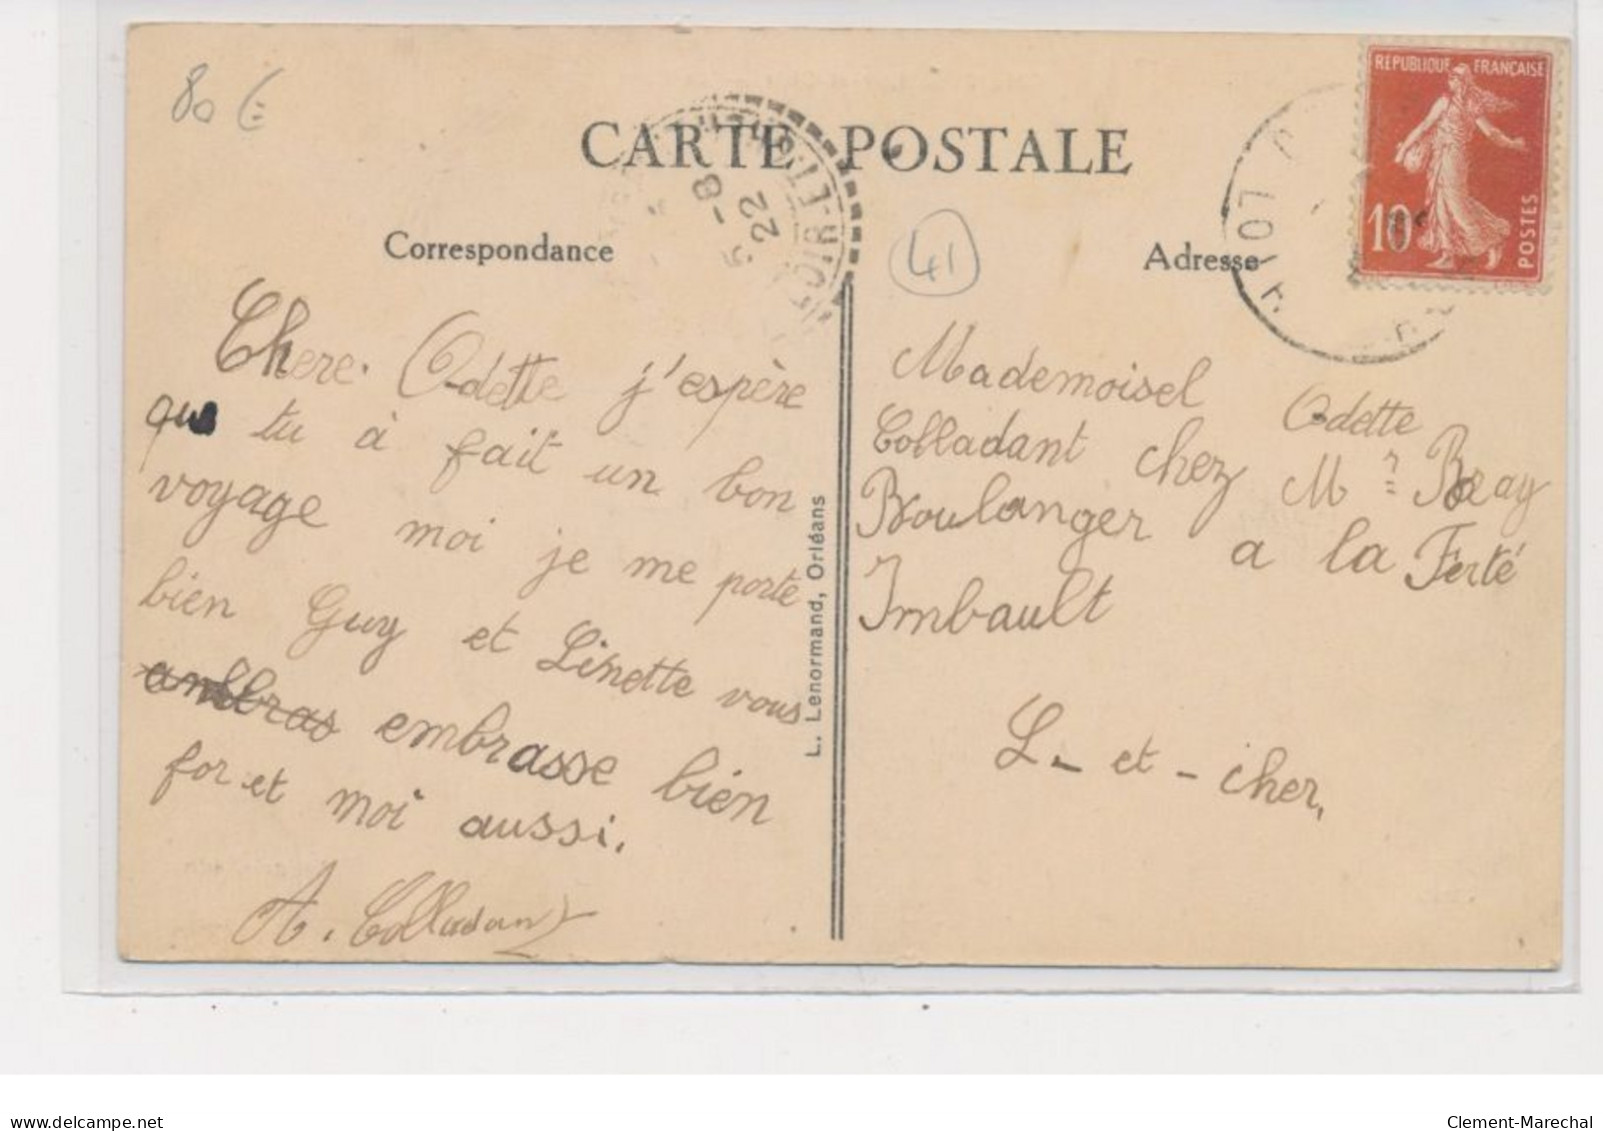 80 €
CARTE POSTALE
RÉPUBLIQUE FRANÇAISE
10c
POSTES
5 -8
22
LOIR-ET-
LOIR
Correspondance
41
Adresse
Chere. Odette j'espère
que tu à fait un bon
voyage moi je me porte
bien Guy et Linette vous
embrasse bien
for et moi aussi.
A. Colladant
L. Lenormand, Orléans
Mademoisel Odette
Colladant chez Mr Beay
Boulanger a la Ferté
Imbault
L- et - cher,
www.delcampe.net
Clement-Marechal